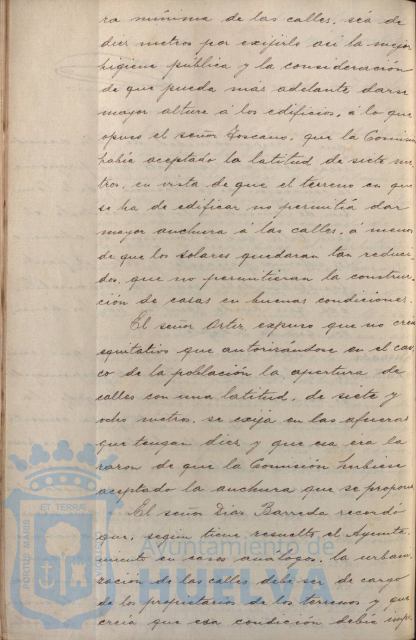 ra mínima de las calles, sea de
diez metros por exijirlo asi la mejor
higiene pública y la consideración
de que pueda más adelante darse
mayor altura á los edificios, á lo que
opuso el señor Toscano, que la Comision
había aceptado la latitud de siete me-
tros, en vista de que el terreno en que
se ha de edificar no permitía dar
mayor anchura á las calles, á menos
de que los solares quedaran tan reduci-
dos, que no permitieran la construc-
ción de casas en buenas condiciones.
El señor Ortiz expuso que no cree
equitativo que autorizándose en el cas-
co de la población la apertura de
calles con una latitud, de siete y
ocho metros, se exija en las afueras
que tengan diez y que esa era la
razon de que la Comisión hubiese
aceptado la anchura que se propone
El señor Diaz Barreda recordó
que, según tiene resuelto el Ayunta-
miento en casos análogos, la urbani-
zación de las calles debe ser de cargo
de los propietarios de los terrenos y que
creía que esa condición debía imp
PORTUS MARIS
ET TERRAE
Ayuntamiento de
HUELVA